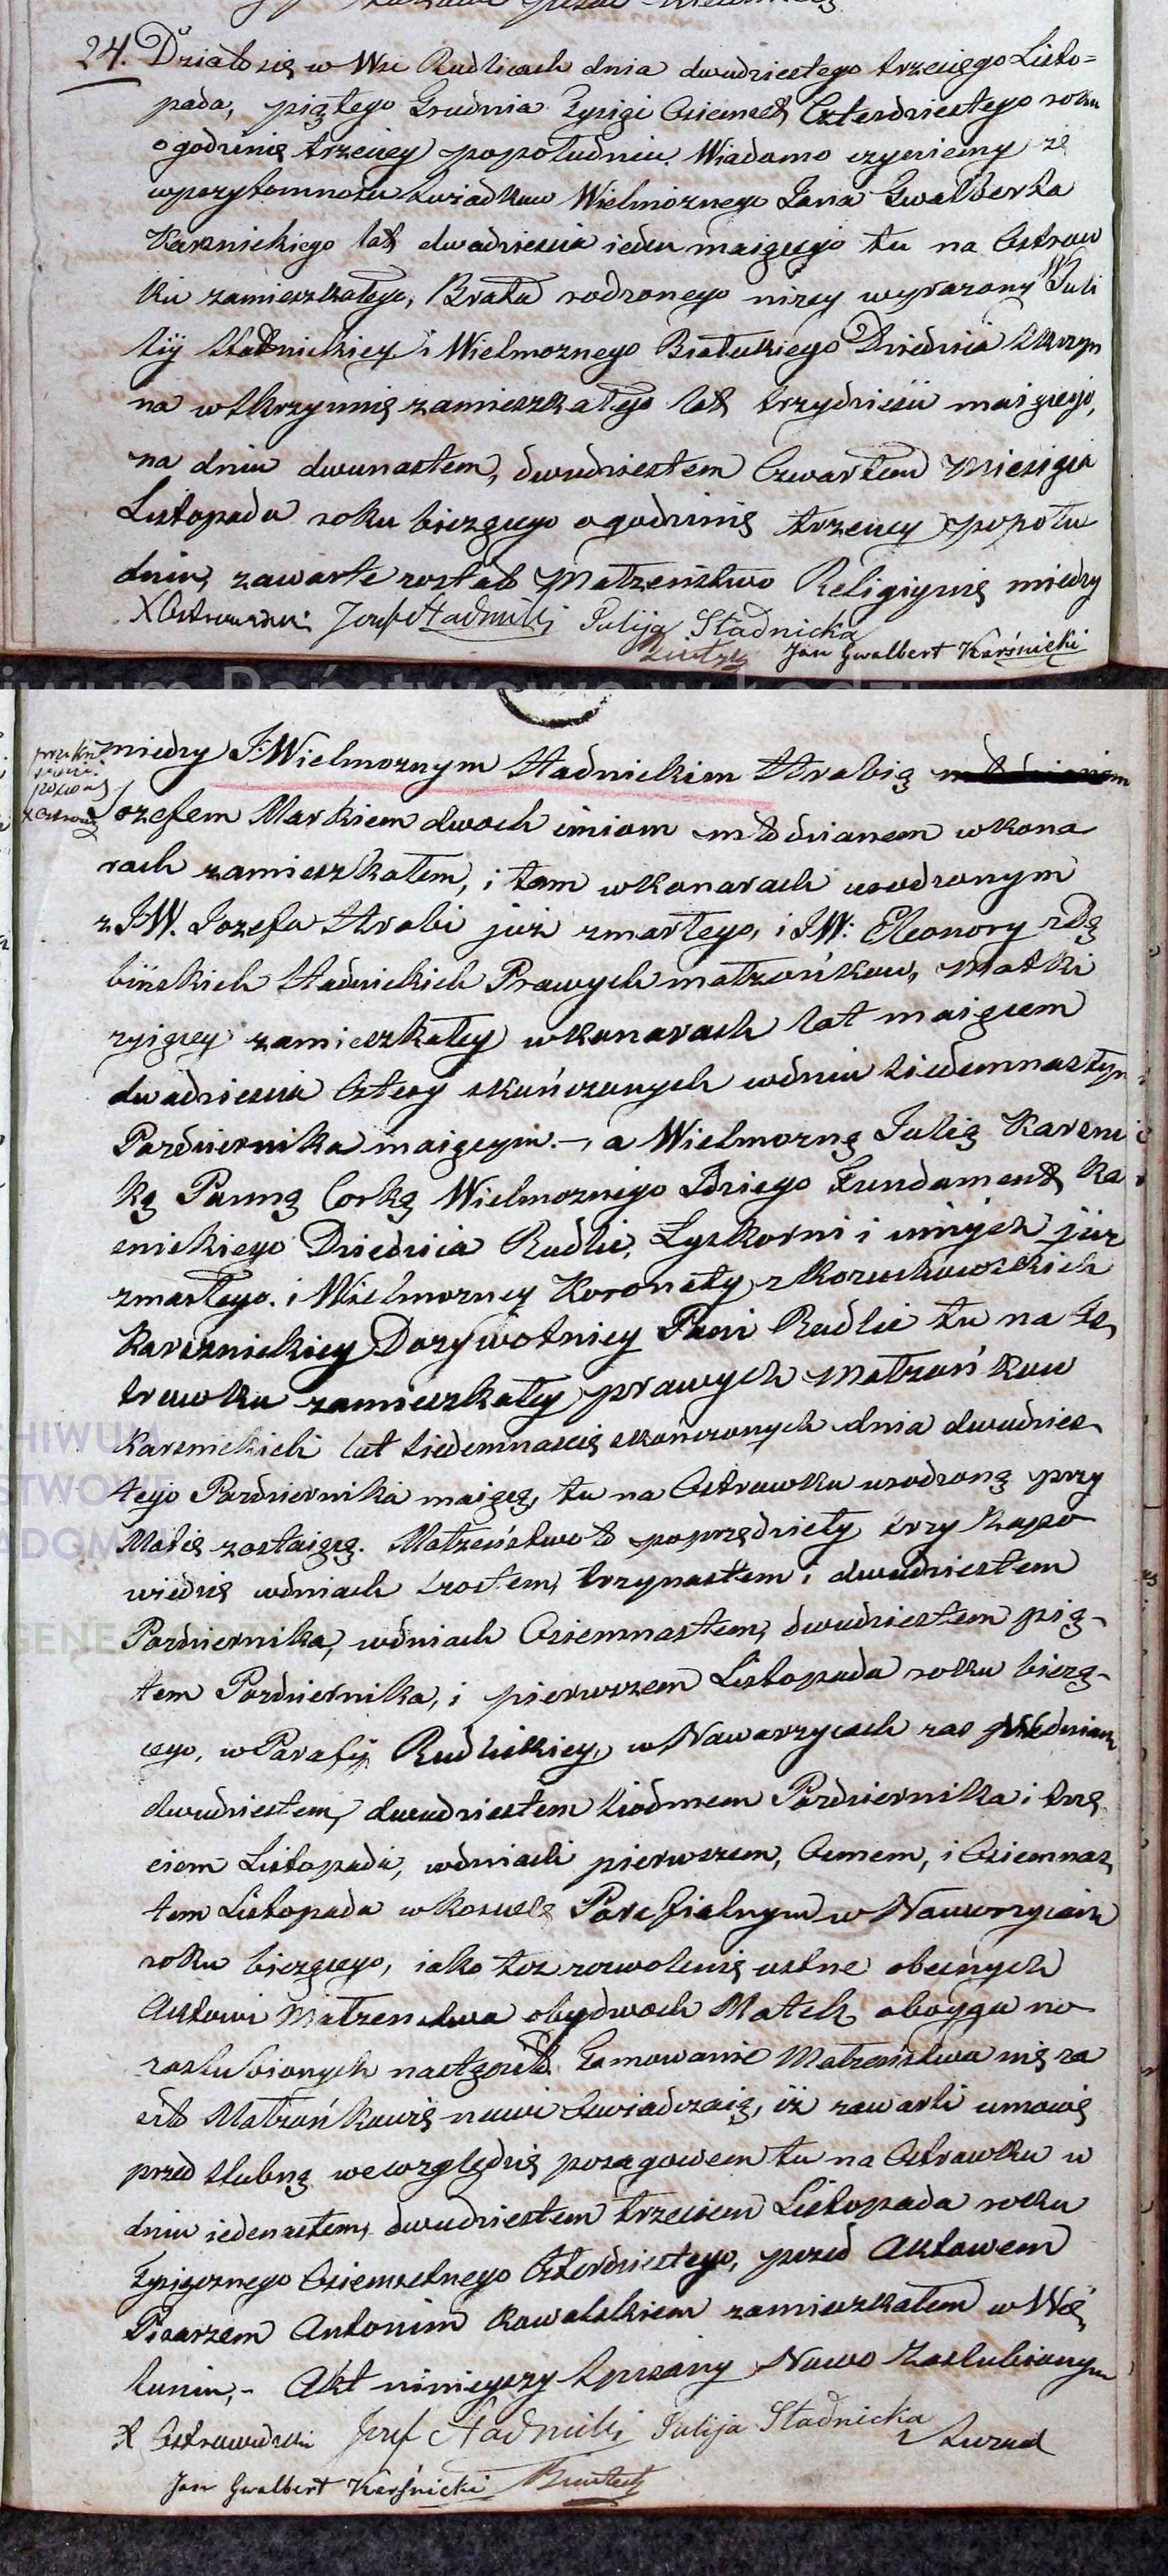 24. Działo się w Wsi Rudlicach dnia dwudziestego trzeciego Listo=
pada, piątego Grudnia Tysiąc Ośiemset Czterdziestego roku
o godzinie trzeciey popołudniu. Wiadomo czyniemy że
w przytomności Swiadkow Wielmożnego Jana Gwalberta
Karsnickiego lat dwadziescia ieden maiącego tu na Ostrow
ku zamieszkałego, Brata rodzonego niżey wyrażony Juli
ij Stadnickiey i Wielmożnego Dziedzica Skrzyn
na w Skrzynnie zamieszkałego lat trzydzieści maiącego,
na dniu dwunastem, dwudziestem Czwartem Miesiąca
Listopada roku bieżącego o godzinie trzeciey popołu
dniu, zawarte zostało Małżeństwo Religiynie między
X Ostrowski Jozef Stadnicki Julija Stadnicka
Jan Gwalbert Karśnicki
między J: Wielmożnym Stadnickiem Hrabią
Jozefem Markiem dwoch imiom młodzianem w Kona
rach zamieszkałem, i tam w Konarach urodzonym
z JW. Jozefa Hrabi już zmarłego, i JW: Eleonory z Dą
bińskich Stadnickich Prawych małżonkow, Matki
żyiącey zamieszkałey w Konarach lat maiącem
dwadziescia Cztery skończonych w dniu Siedemnastym
Pazdziernika maiącym. – a Wielmożną Julią Karsnic
ką Panną Corką Wielmożnego Idziego Fundament Ka
snickiego Dziedzica Rudlic, Łyskorni i innych już
zmarłego. i Wielmożney Koronaty z Kożuchowskich
Karsznickiey Dożywotniey Pani Rudlic tu na Os
trowku zamieszkałey prawych Małżonkow
Karsnickich lat siedemnascie skończonych dnia dwudzies
tego Pazdziernika maiącą, tu na Ostrowku urodzoną przy
Matce zostaiącą. Małżeństwo to poprzedziety trzy Zapo
wiedzie w dniach szostem, trzynastem i dwudziestem
Pazdziernika, w dniach Osiemnastem, dwudziestem pią-
tem Pazdziernika, i pierwszem Listopada roku bieżą-
cego, w Parafij Rudlickiey, w Nawarzycach zas w dniach
dwudziestem, dwudziestem siodmem Pazdziernika i trze
ciem Listopada, w dniach pierwszem, Osmem, i Osiemnas
tem Listopada w Kosciele Parafialnym w Nawarzycach
roku bieżącego, iako też zezwolenie ustne obecnych
Aktowi Małżenstwa obydwoch Matek oboyga no
zaslubionych nastąpiło. Tamowanie Małżeństwa nie za
szło Małżonkowie nowi Swiadczaią, iż zawarli umowę
przed slubną we względzie posagowem tu na Ostrowku w
dniu iedenastem, dwudziestem trzeciem Listopada roku
Tysiącznego Osiemsetnego Czterdziestego, przed Aktowem
Pisarzem Antonim Kowalskiem zamieszkałem w Wie
luniu, – Akt ninieyszy Spisany Nowo Zaslubionym
X Ostrowski Jozef Stadnicki Julija Stadnicka
Jan Gwalbert Karśnicki